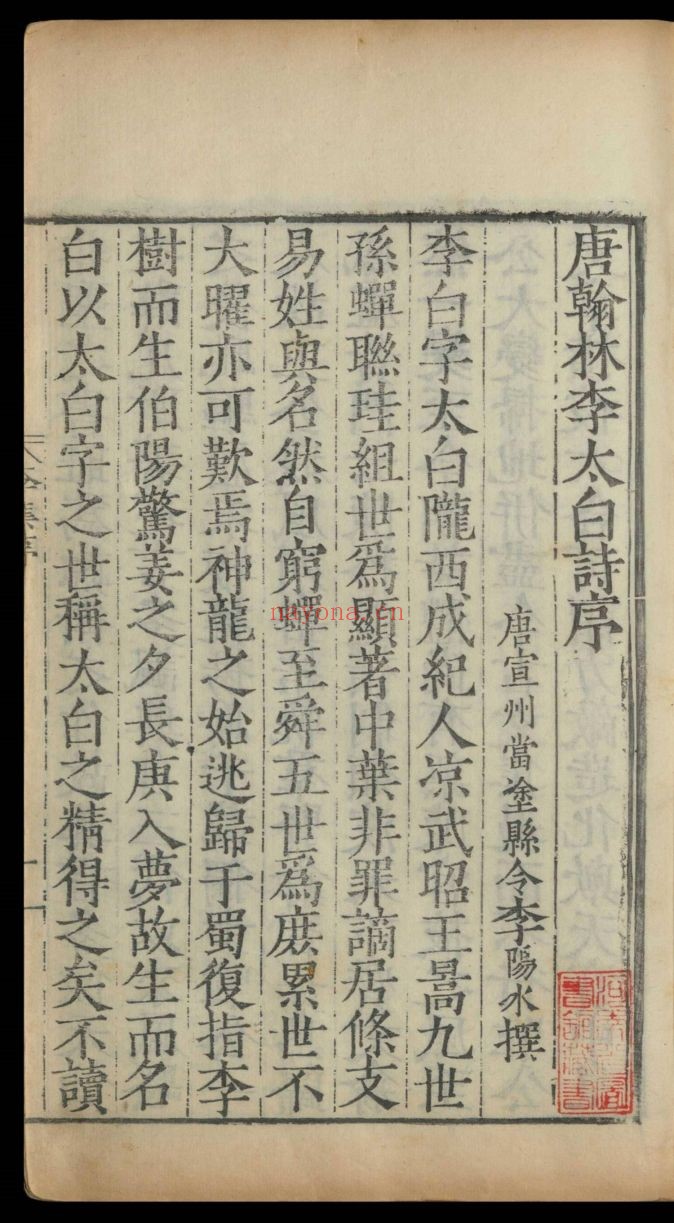 唐翰林李太白詩序
唐宣州當塗縣令李陽氷撰
李白字太白隴西成紀人凉武昭王暠九世
孫蟬聯珪組世爲顯著中葉非罪謫居條支
易姓與名然自窮蟬至舜五世爲庶累世不
大曜亦可歎焉神龍之始逃歸于蜀復指李
樹而生伯陽驚姜之夕長庚入夢故生而名
白以太白字之世稱太白之精得之矣不讀
nayona.cn